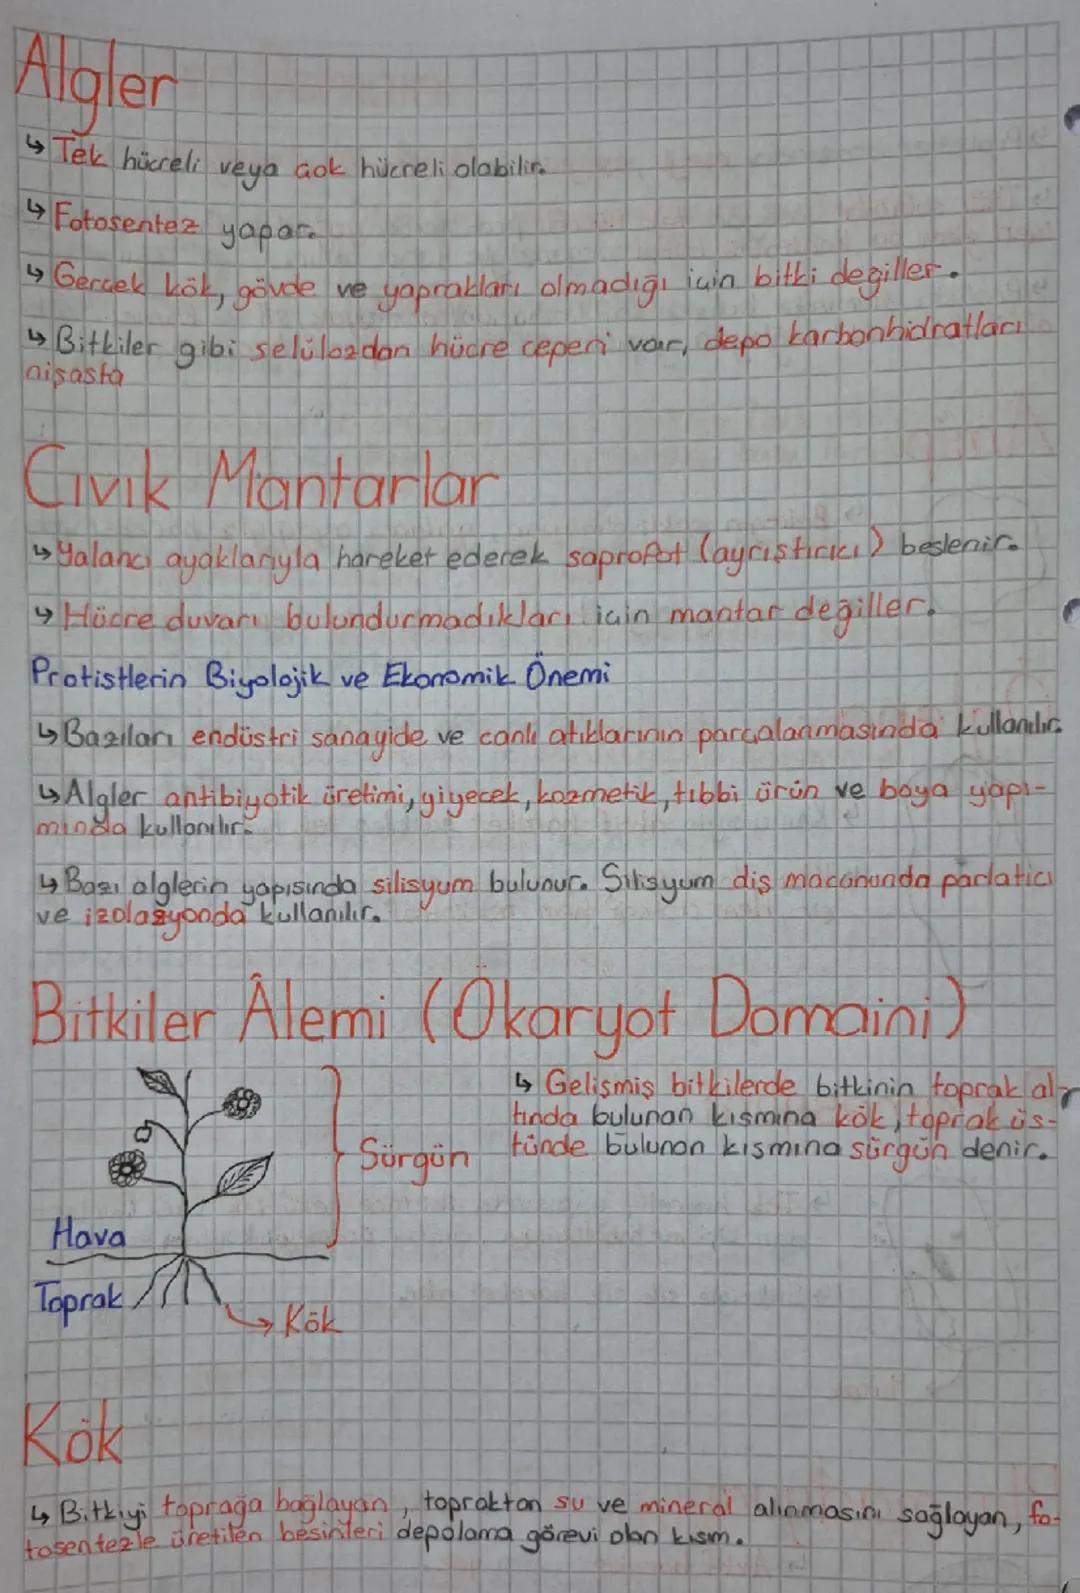 Algler
↳ Tek hücreli veya çok hücreli olabilir.
↳ Fotosentez yapar.
↳ Gerçek kök, gövde ve yaprakları olmadığı için bitki değiller.
↳ Bitkiler gibi selülozdan hücre çeperi var, depo karbonhidratları
nişasta
Cıvık Mantarlar
↳ Yalancı ayaklarıyla hareket ederek saprofot (ayrıştırıcı) beslenir.
↳ Hücre duvarı bulundurmadıkları için mantar değiller.
Protistlerin Biyolojik ve Ekonomik Önemi
↳ Bazıları endüstri sanayide ve canlı atıklarının parçalanmasında kullanılır.
↳ Algler antibiyotik üretimi, yiyecek, kozmetik, tıbbi ürün ve boya yapı-
mında kullanılır.
↳ Bazı alglerin yapısında silisyum bulunur. Silisyum diş macununda parlatıcı
ve izolasyonda kullanılır.
Bitkiler Âlemi (Ökaryot Domaini)
↳ Gelişmiş bitkilerde bitkinin toprak al-
tında bulunan kısmına kök, toprak üs-
tünde bulunan kısmına sürgün denir.
Sürgün
Hava
Toprak
Kök
Kök
↳ Bitkiyi toprağa bağlayan, topraktan su ve mineral alınmasını sağlayan, fo-
tosentezle üretilen besinleri depolama görevi olan kısım.